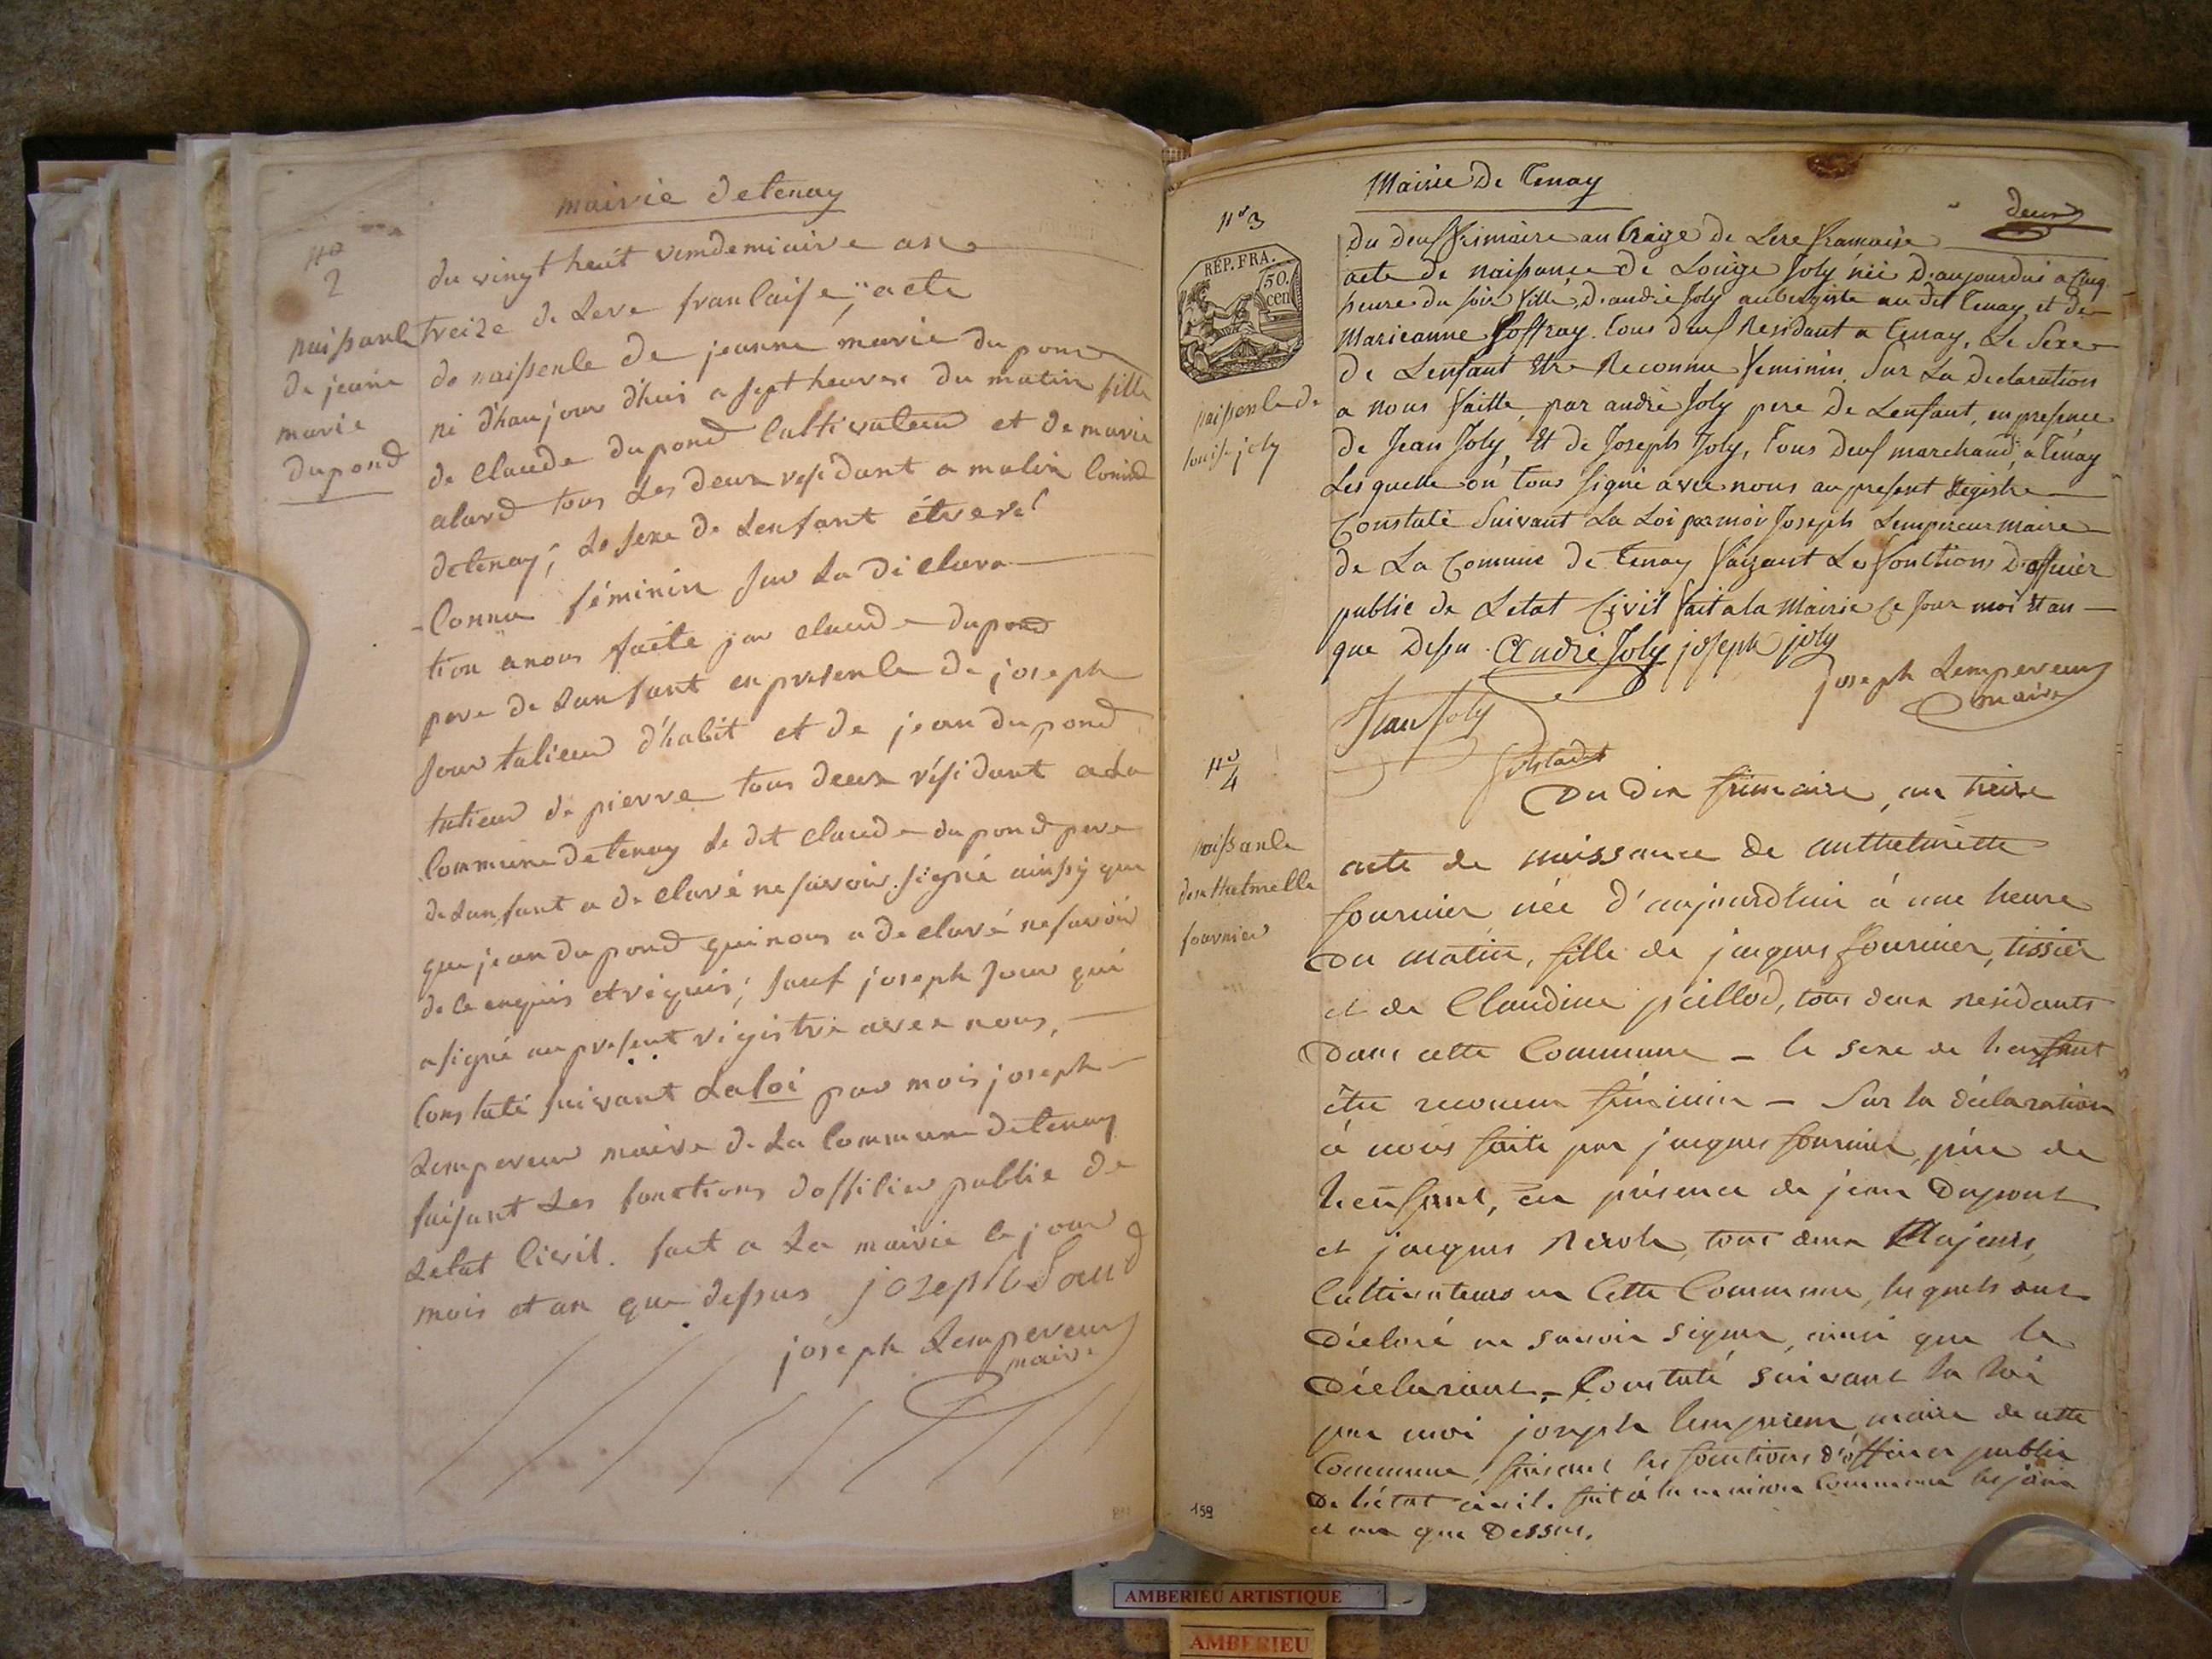 mairie detenay
no
2
naissanle
de jeane
marie
dupond
du vingt heuit vemdemiaire an
treize de Lere franlaise; acte
de naissenle de jeanne marie du pond
né d'haujour d'hui a sept heures du matin fille
de claude dupond Cultivateur et de marie
alard tous Les deux residant a malix
detenay; Le sexe de Lenfant étre rel
-Connu féminin sur La déclara
tion a nous faite par claude dupond
pere de Lanfant en presenle de joseph
talieur d'habit et de jean dupond
talieur de pierre tous deux résidant a La
Commune detenay Le dit claude dupond pere
de Lanfant a de claré ne savoir signé ainssy que
que jean du pond qui nous a de claré ne savoir
de le enquis et réquis; sauf joseph qui
a signé au present régistre avec nous,
Constaté suivant La loi par mois joseph
Lempereur maire de La Commune detenay
faisant Les fonctions d'offilier public de
Letat livil. fait a La mairie le jour
mois et an que dessus joseph
joseph Lempereur
maire
Mairie De Tenay
deux
no 3
RÉP. FRA.
50.
cen
naissenle de
louise joly
Du deuf frimaire an traize de Lere framaise
acte de naissance de Louise Joly née D'aujourdui a Cinq
heure du soir fille D'andré Joly aubergiste au dit Tenay et de
Marieanne Joffray tous deuf Residant a Tenay, Le Sexe
de Lenfant Etre Reconnu feminin Sur La Declaration
a nous faitte par andré Joly pere De Lenfant, en presence
de Jean Joly, Et de Joseph Joly, Tous deuf marchand a Tenay
Les quelle on tous signé avec nous au present Registre
Constaté Suivant La Loi par moi Joseph Lempereur maire
de La Comune de Tenay faizant Les fonctions D'officier
public de Letat Civil fait a la Mairie Ce Jour moi Et an
que Desu. André Joly joseph joly
joseph Lempereur
maire
Jean Joly
no
4
naissanle
danthelmelle
fournier
Du dix frimaire, an treize
acte de naissance de anthelmette
fournier née d'aujourd'hui à une heure
Du matin, fille de jacques fournier, tissier
et de Claudine peillod, tous deux residants
Dans cette Commune - le sexe de l'enfant
être reconnu féminin - Sur la déclaration
à nous faite par jacques fournier, père de
l'enfant, en présence de jean Dupont
et jacques tous deux Majeurs,
Cultivateurs en Cette Commune, lesquels ont
Déclaré ne savoir signer, ainsi que le
Déclarant - Constaté suivant la loi
par moi joseph lempereur maire de cette
Commune, faisant les fonctions d'officier public
De l'état civil. fait à la maison Commune les jour
et an que Dessus.
159
AMBERIEU ARTISTIQUE
AMBERIEU